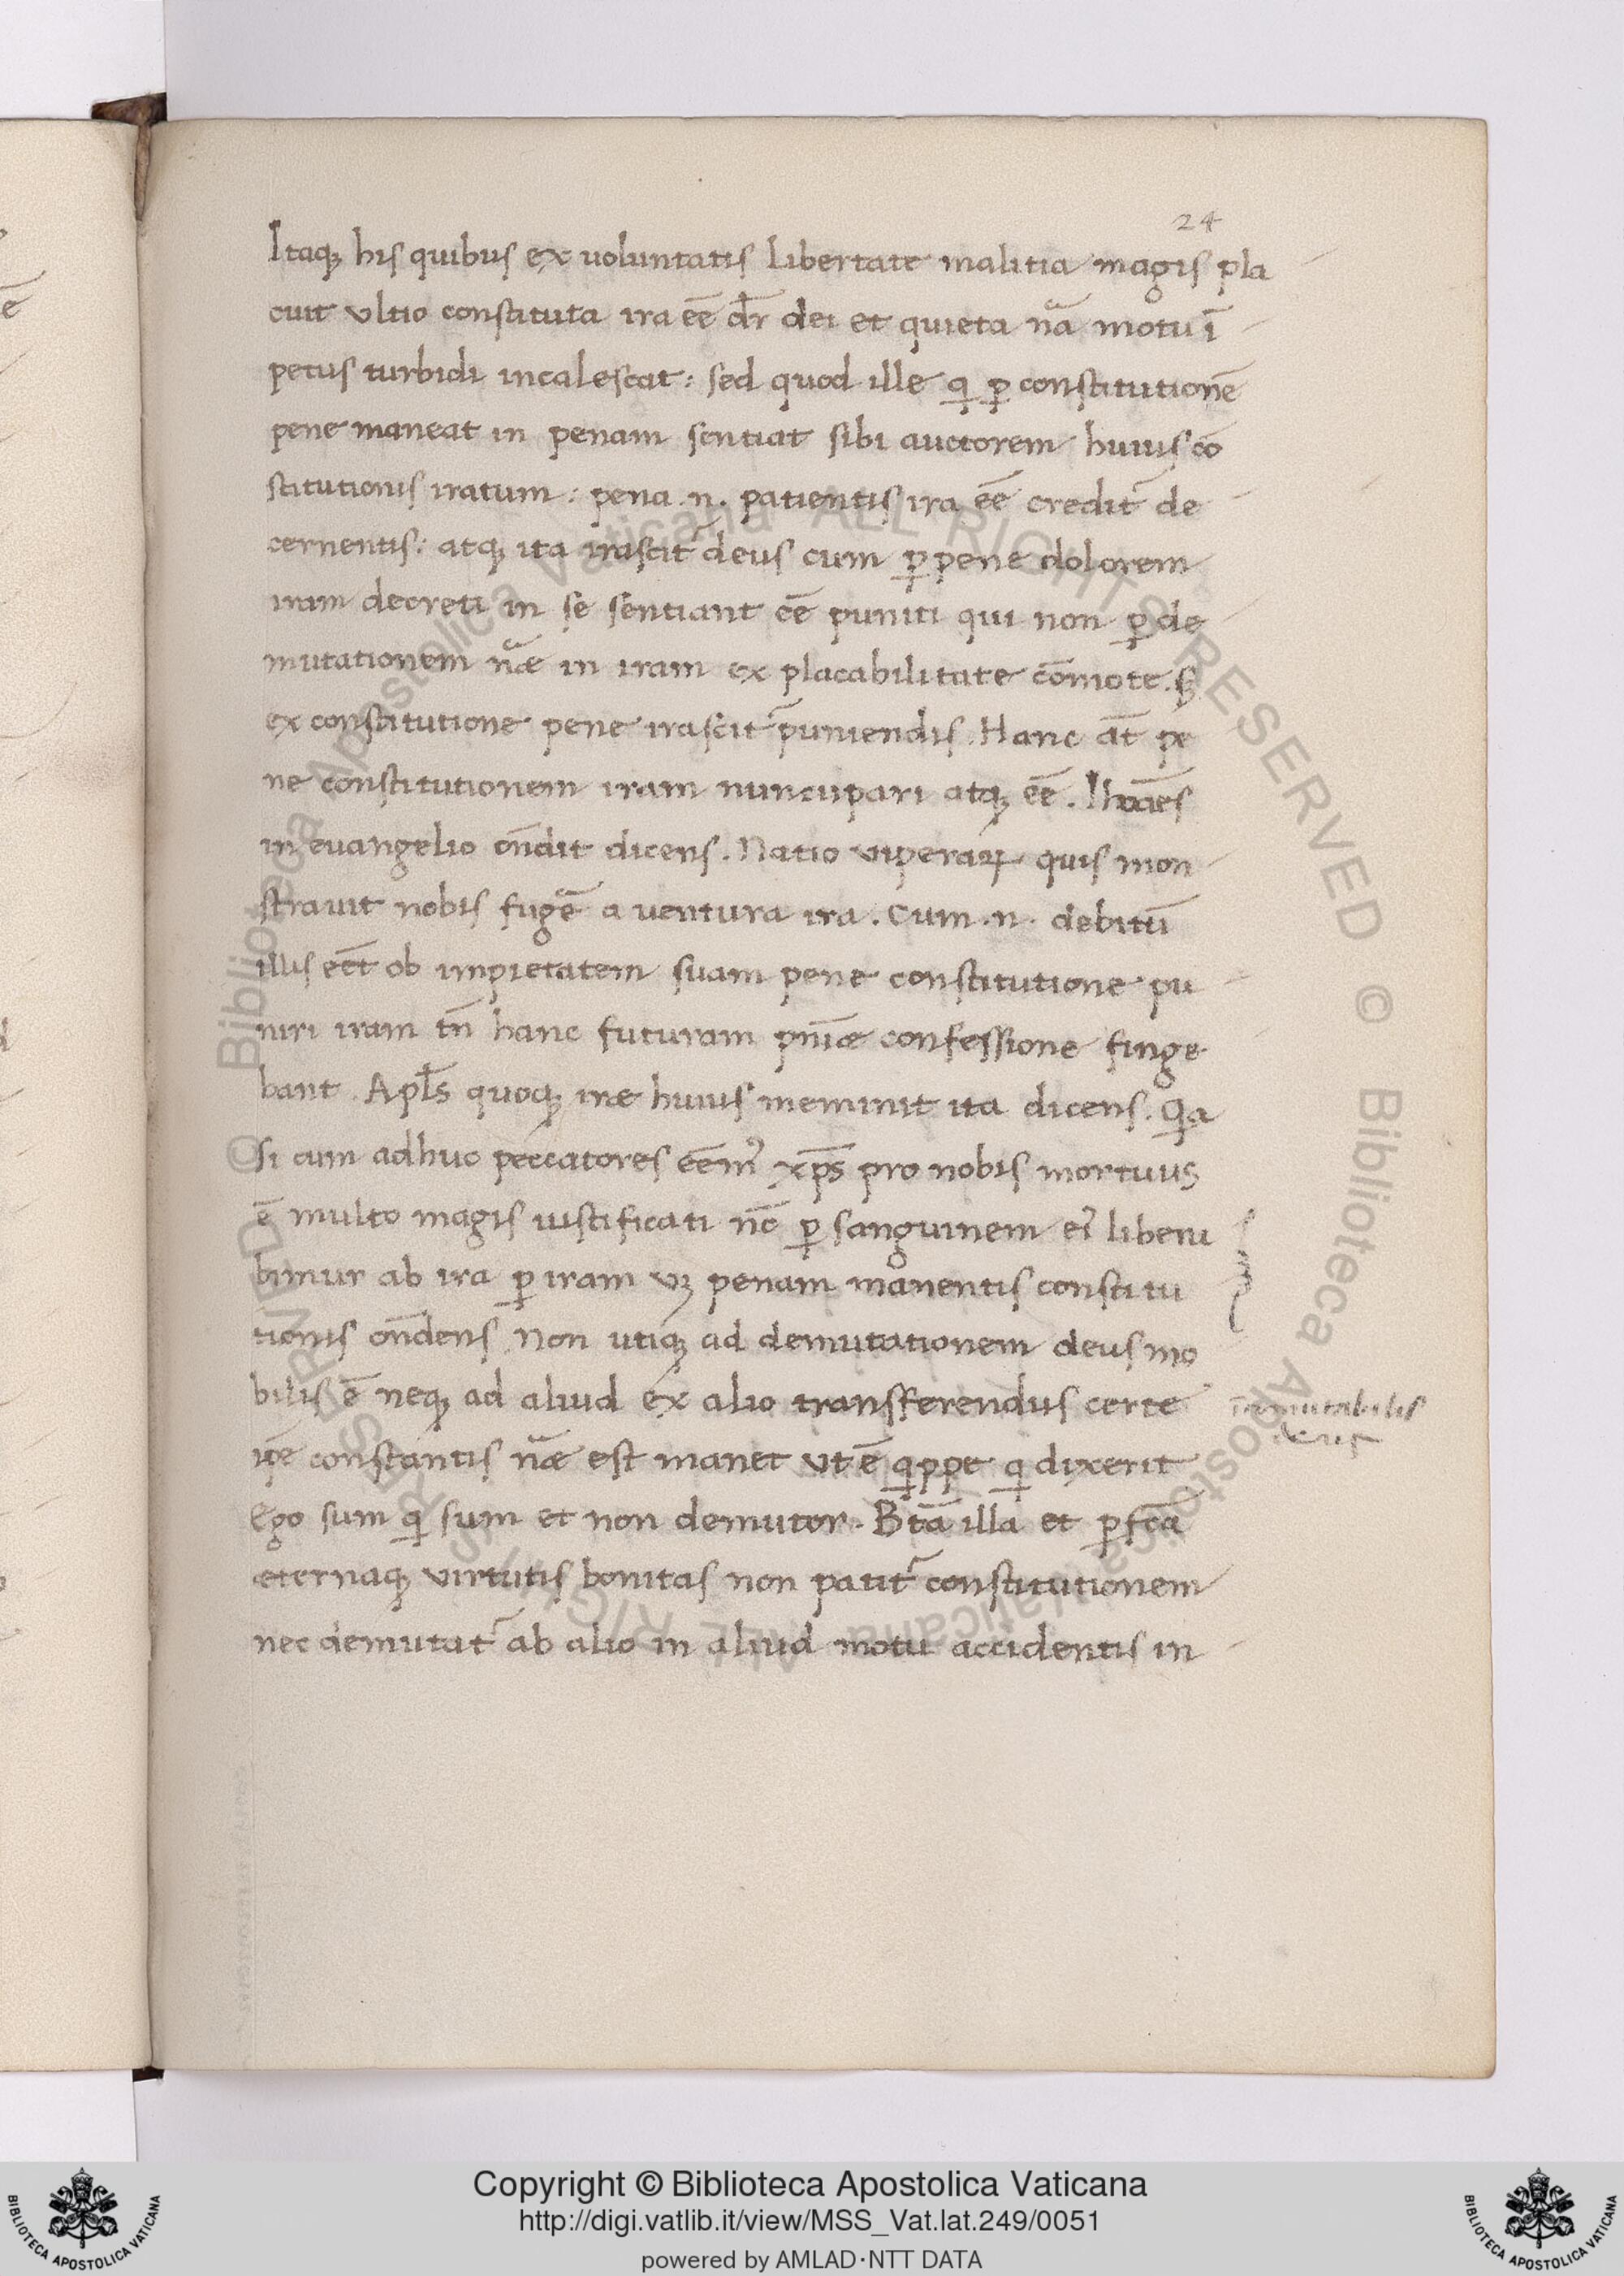 24
Itaq; his quibus ex uoluntatis libertate malitia magis pla
cuit ultio constituta ira eē dr̄ dei et quieta nā motu ī
petus turbidi incalescat: sed quod ille q̣ ꝑ constitutionē
pene maneat in penam sentiat sibi auctorem huius cō
stitutionis iratum: pena .n. patientis ira eē credit̄ de
cernentis: atq; ita irascit̄ deus cum ꝑ pene dolorem
iram decreti in se sentiant eē puniti qui non ꝑ de
mutationem nāe in iram ex placabilitate cōmote. s;
ex constitutione pene irascit̄ puniendis. Hanc āt pe
ne constitutionem iram nuncupari atq; eē. Ihoāēs
in euangelio oñdit dicens. Natio viperaꝝ quis mon
strauit nobis fugē a uentura ira. Cum .n. debitū
illis eēt ob impietatem suam pene constitutione pu
niri iram tñ hanc futuram pnīae confessione fuge
bant. Apl̄s quoq; irae huius meminit ita dicens. Qa
si cum adhuc peccatores eēm᾽ xp̄s pro nobis mortuus
ē multo magis iustificati nō ꝑ sanguinem ei᾽ libera
bimur ab ira ꝑ iram uꝫ penam manentis constitu
tionis oñdens. Non utiq; ad demutationem deus mo
bilis ē neq; ad aliud ex alio transferendus certe
ip̄e constantis nāe est manet ut ē qippe qi dixerit
Ego sum qi sum et non demutor. Btā illa et ꝑfctā
æternaq; virtutis bonitas non patit̄ constitutionem
nec demutat̄ ab alio in aliud motu accidentis in
īmutabilis
deus
© Biblioteca Apostolica Vaticana ALL RIGHTS RESERVED
© Biblioteca Apostolica Vaticana ALL RIGHTS RESERVED
Copyright © Biblioteca Apostolica Vaticana
http://digi.vatlib.it/view/MSS_Vat.lat.249/0051
powered by AMLAD·NTT DATA
BIBLIOTECA APOSTOLICA VATICANA
BIBLIOTECA APOSTOLICA VATICANA